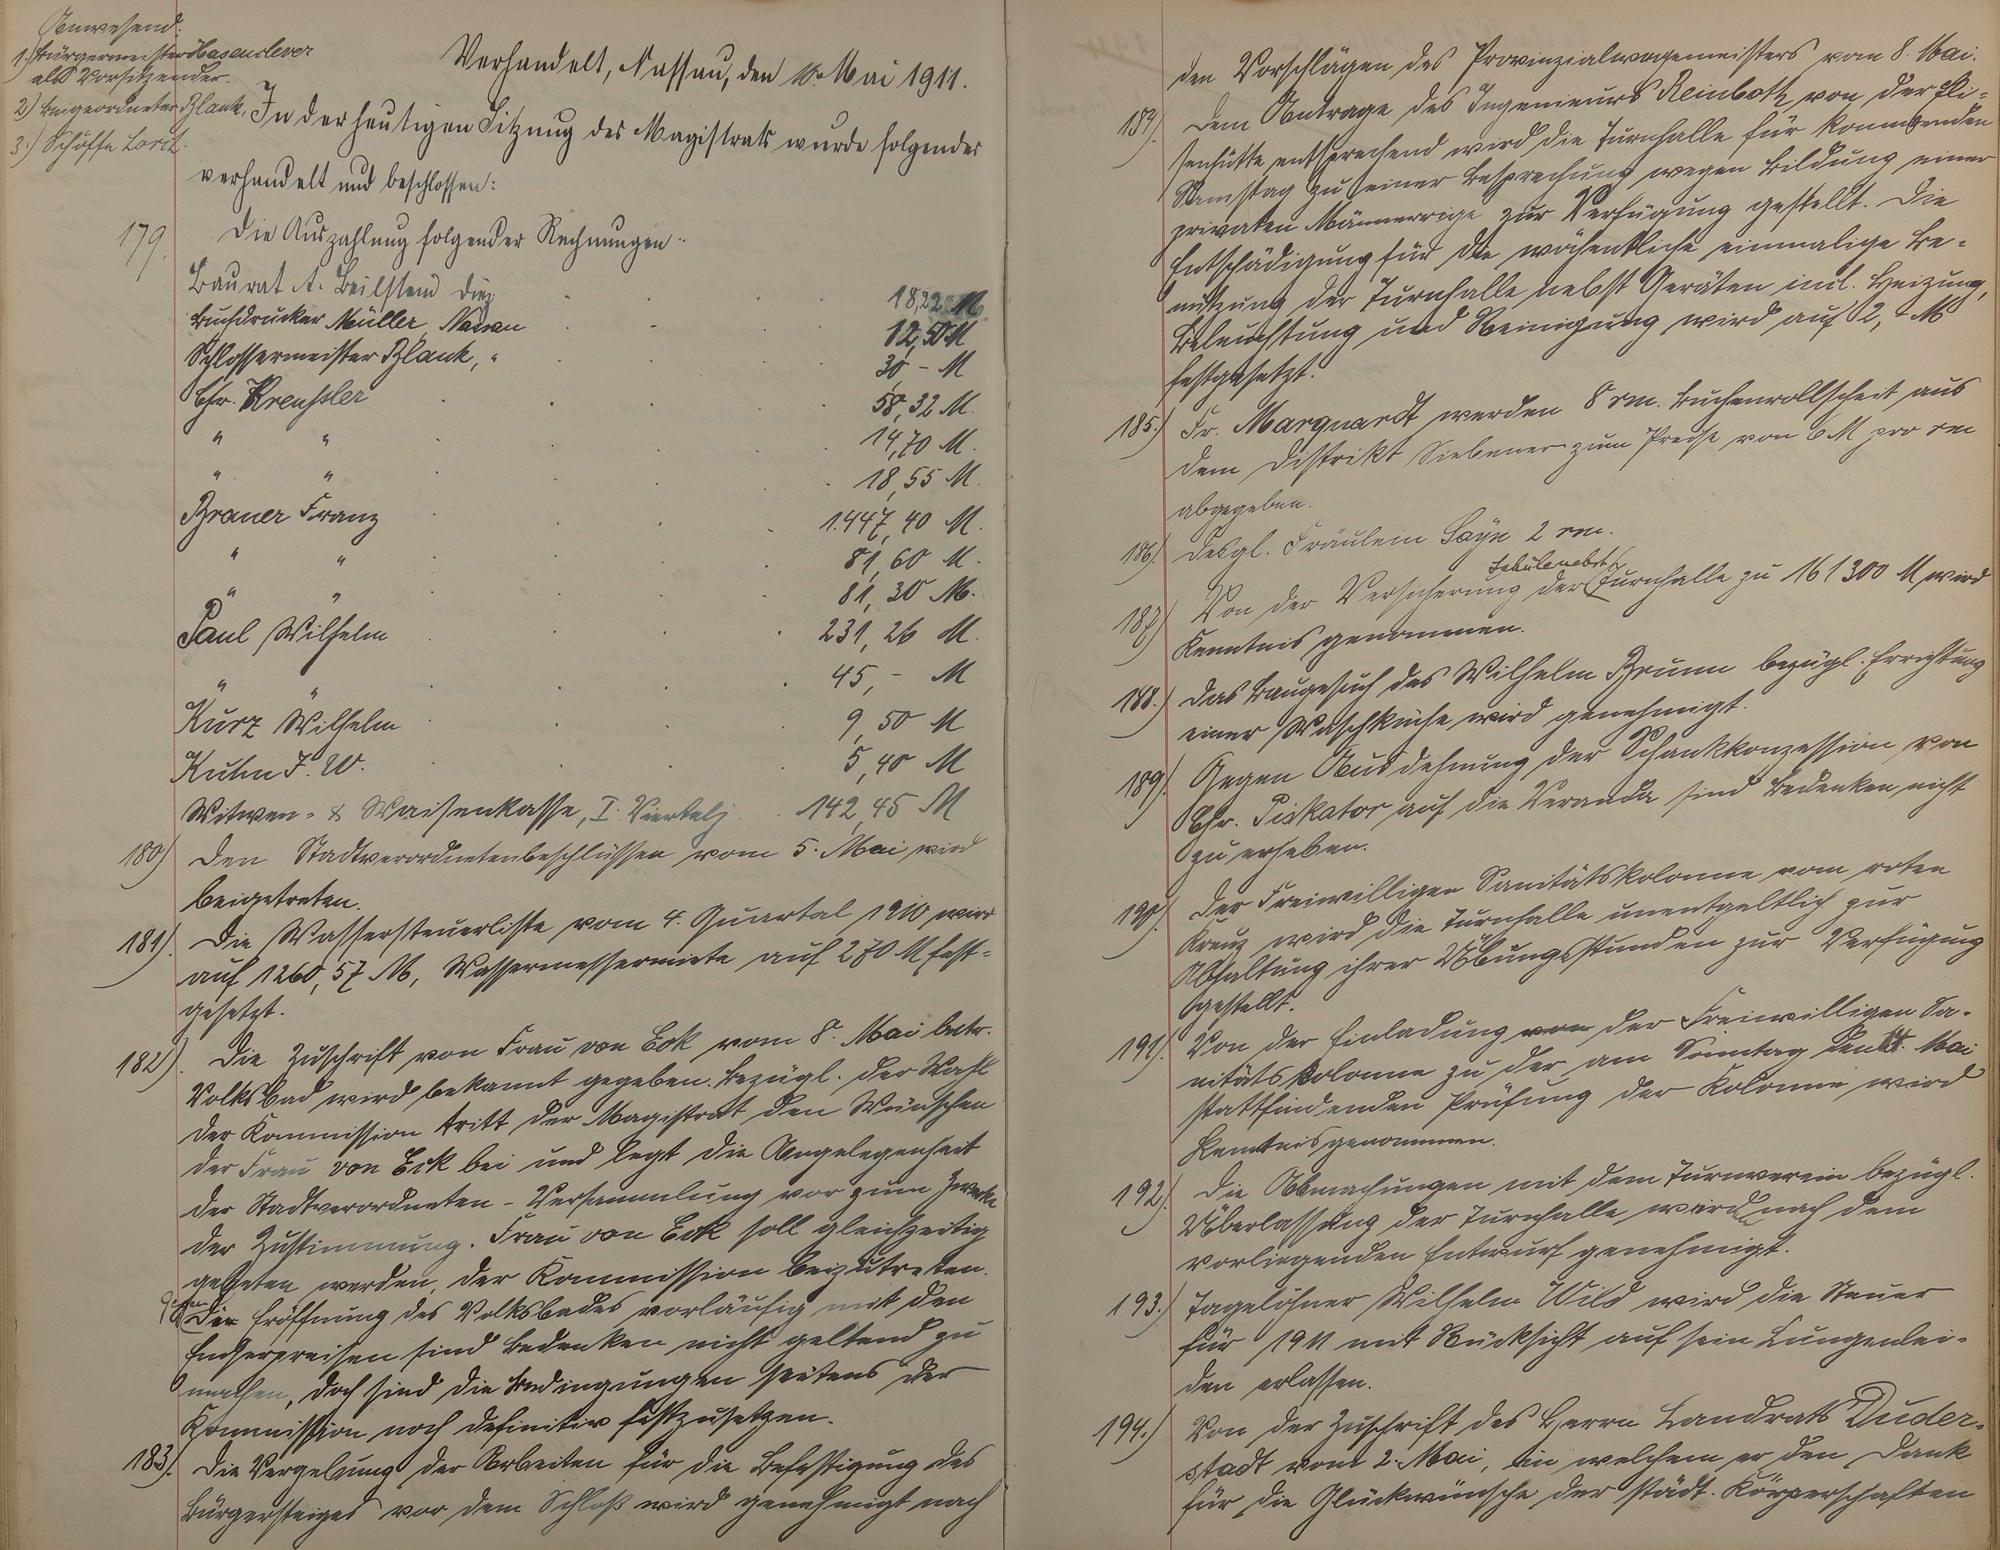 Anwesend:
1.) Bürgermeister Hasenclever
als Vorsitzender.
2.) Beigeordneter Blank,
3.) Schöffe Lorch.
Verhandelt, Nassau, den 10. Mai 1911.
In der heutigen Sitzung des Magistrats wurde folgendes
verhandelt und beschlossen:
179. Die Auszahlung folgender Rechnungen:
Baurat A. Beilstein Diez 18,22 M
Buchdrucker Müller, Nassau 12,50 M
Schlossermeister Blank, " 30,- M
Chr. Kreuzler 58,32 M.
" " 14,70 M.
" " 18,55 M.
Brauer Franz 1447,40 M.
" " 81,60 M.
" " 81,30 M.
Paul Wilhelm 231,26 M.
" " 45,- M
Kurz Wilhelm 9,50 M
Kuhn F. W. 5,40 M
Witwen- & Waisenkasse, I. Viertelj. 142,45 M
180) Den Stadtverordnetenbeschlüssen vom 5. Mai wird
beigetreten.
181). Die Wassersteuerliste vom 4. Quartal 1910 wird
auf 1260,57 M, Wassermessermiete auf 270 M fest-
gesetzt.
182). Die Zuschrift von Frau von Eck vom 8. Mai betr.
Volksbad wird bekannt gegeben. Bezügl. der Wahl
der Kommission tritt der Magistrat den Wünschen
der Frau von Eck bei und legt die Angelegenheit
der Stadtverordneten-Versammlung vor zum Zwecke
der Zustimmung. Frau von Eck soll gleichzeitig
gebeten werden, der Kommission beizutreten.
Gegen die Eröffnung des Volksbades vorläufig mit den
Endserpreisen sind Bedenken nicht geltend zu
machen, doch sind die Bedingungen seitens der
Kommission noch definitiv festzusetzen.
183). Die Vergebung der Arbeiten für die Befestigung des
Bürgersteiges vor dem Schloß wird genehmigt nach
den Vorschlägen des Provinzialwegemeisters vom 8. Mai.
184). Dem Antrage des Ingenieurs Reinboth von der Eli-
senhütte entsprechend wird die Turnhalle für kommenden
Samstag zu einer Besprechung wegen Bildung einer
privaten Männerrige zur Verfügung gestellt. Die
Entschädigung für die wöchentliche einmalige Be-
nutzung der Turnhalle nebst Geräten incl. Heizung,
Beleuchtung und Reinigung wird auf 2,- M
festgesetzt.
185.) Fr. Marquardt werden 8 rm. Buchenrollscheit aus
dem Distrikt Siebener zum Preise von 6 M pro rm
abgegeben.
186). desgl. Fräulein Sayn 2 rm.
187) Von der Versicherung der Schule nebst Turnhalle zu 161300 M wird
Kenntnis genommen.
188.) Das Baugesuch des Wilhelm Brunn bezügl. Errichtung
einer Waschküche wird genehmigt.
189). Gegen Ausdehnung der Schankkonzession von
Chr. Piskator auf die Veranda sind Bedenken nicht
zu erheben.
190). Der Freiwilligen Sanitätskolonne vom roten
Kreuz wird die Turnhalle unentgeltlich zur
Abhaltung ihrer Übungsstunden zur Verfügung
gestellt.
191). Von der Einladung von der Freiwilligen Sa-
nitätskolonne zu der am Sonntag den Mai
stattfindenden Prüfung der Kolonne wird
Kenntnis genommen.
192). Die Abmachungen mit dem Turnverein bezügl.
Überlassung der Turnhalle werden nach dem
vorliegenden Entwurf genehmigt.
193.) Tagelöhner Wilhelm Wild wird die Steuer
für 1911 mit Rücksicht auf sein Lungenlei-
den erlassen.
194.) Von der Zuschrift des Herrn Landrats Duder-
stadt vom 2. Mai, in welchem er den Dank
für die Glückwünsche der städt. Körperschaften